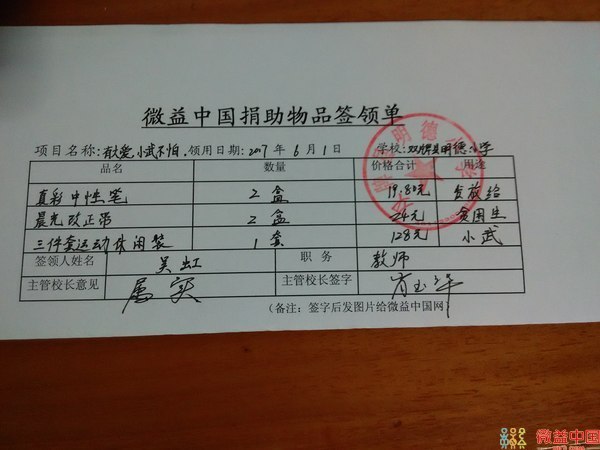 微益中国捐助物品签领单
项目名称:有大爱,小武不怕.领用日期:2017年6月1日 学校:双牌县明德小学
品名 数量 价格合计 用途
真彩中性笔 2盒 19.80元 发放给
晨光改正带 2盒 24元 贫困生
三件套运动休闲装 1套 128元 小武
签领人姓名 吴虹 职务 教师
主管校长意见 属实 主管校长签字
(备注:签字后发图片给微益中国网)
微益中国